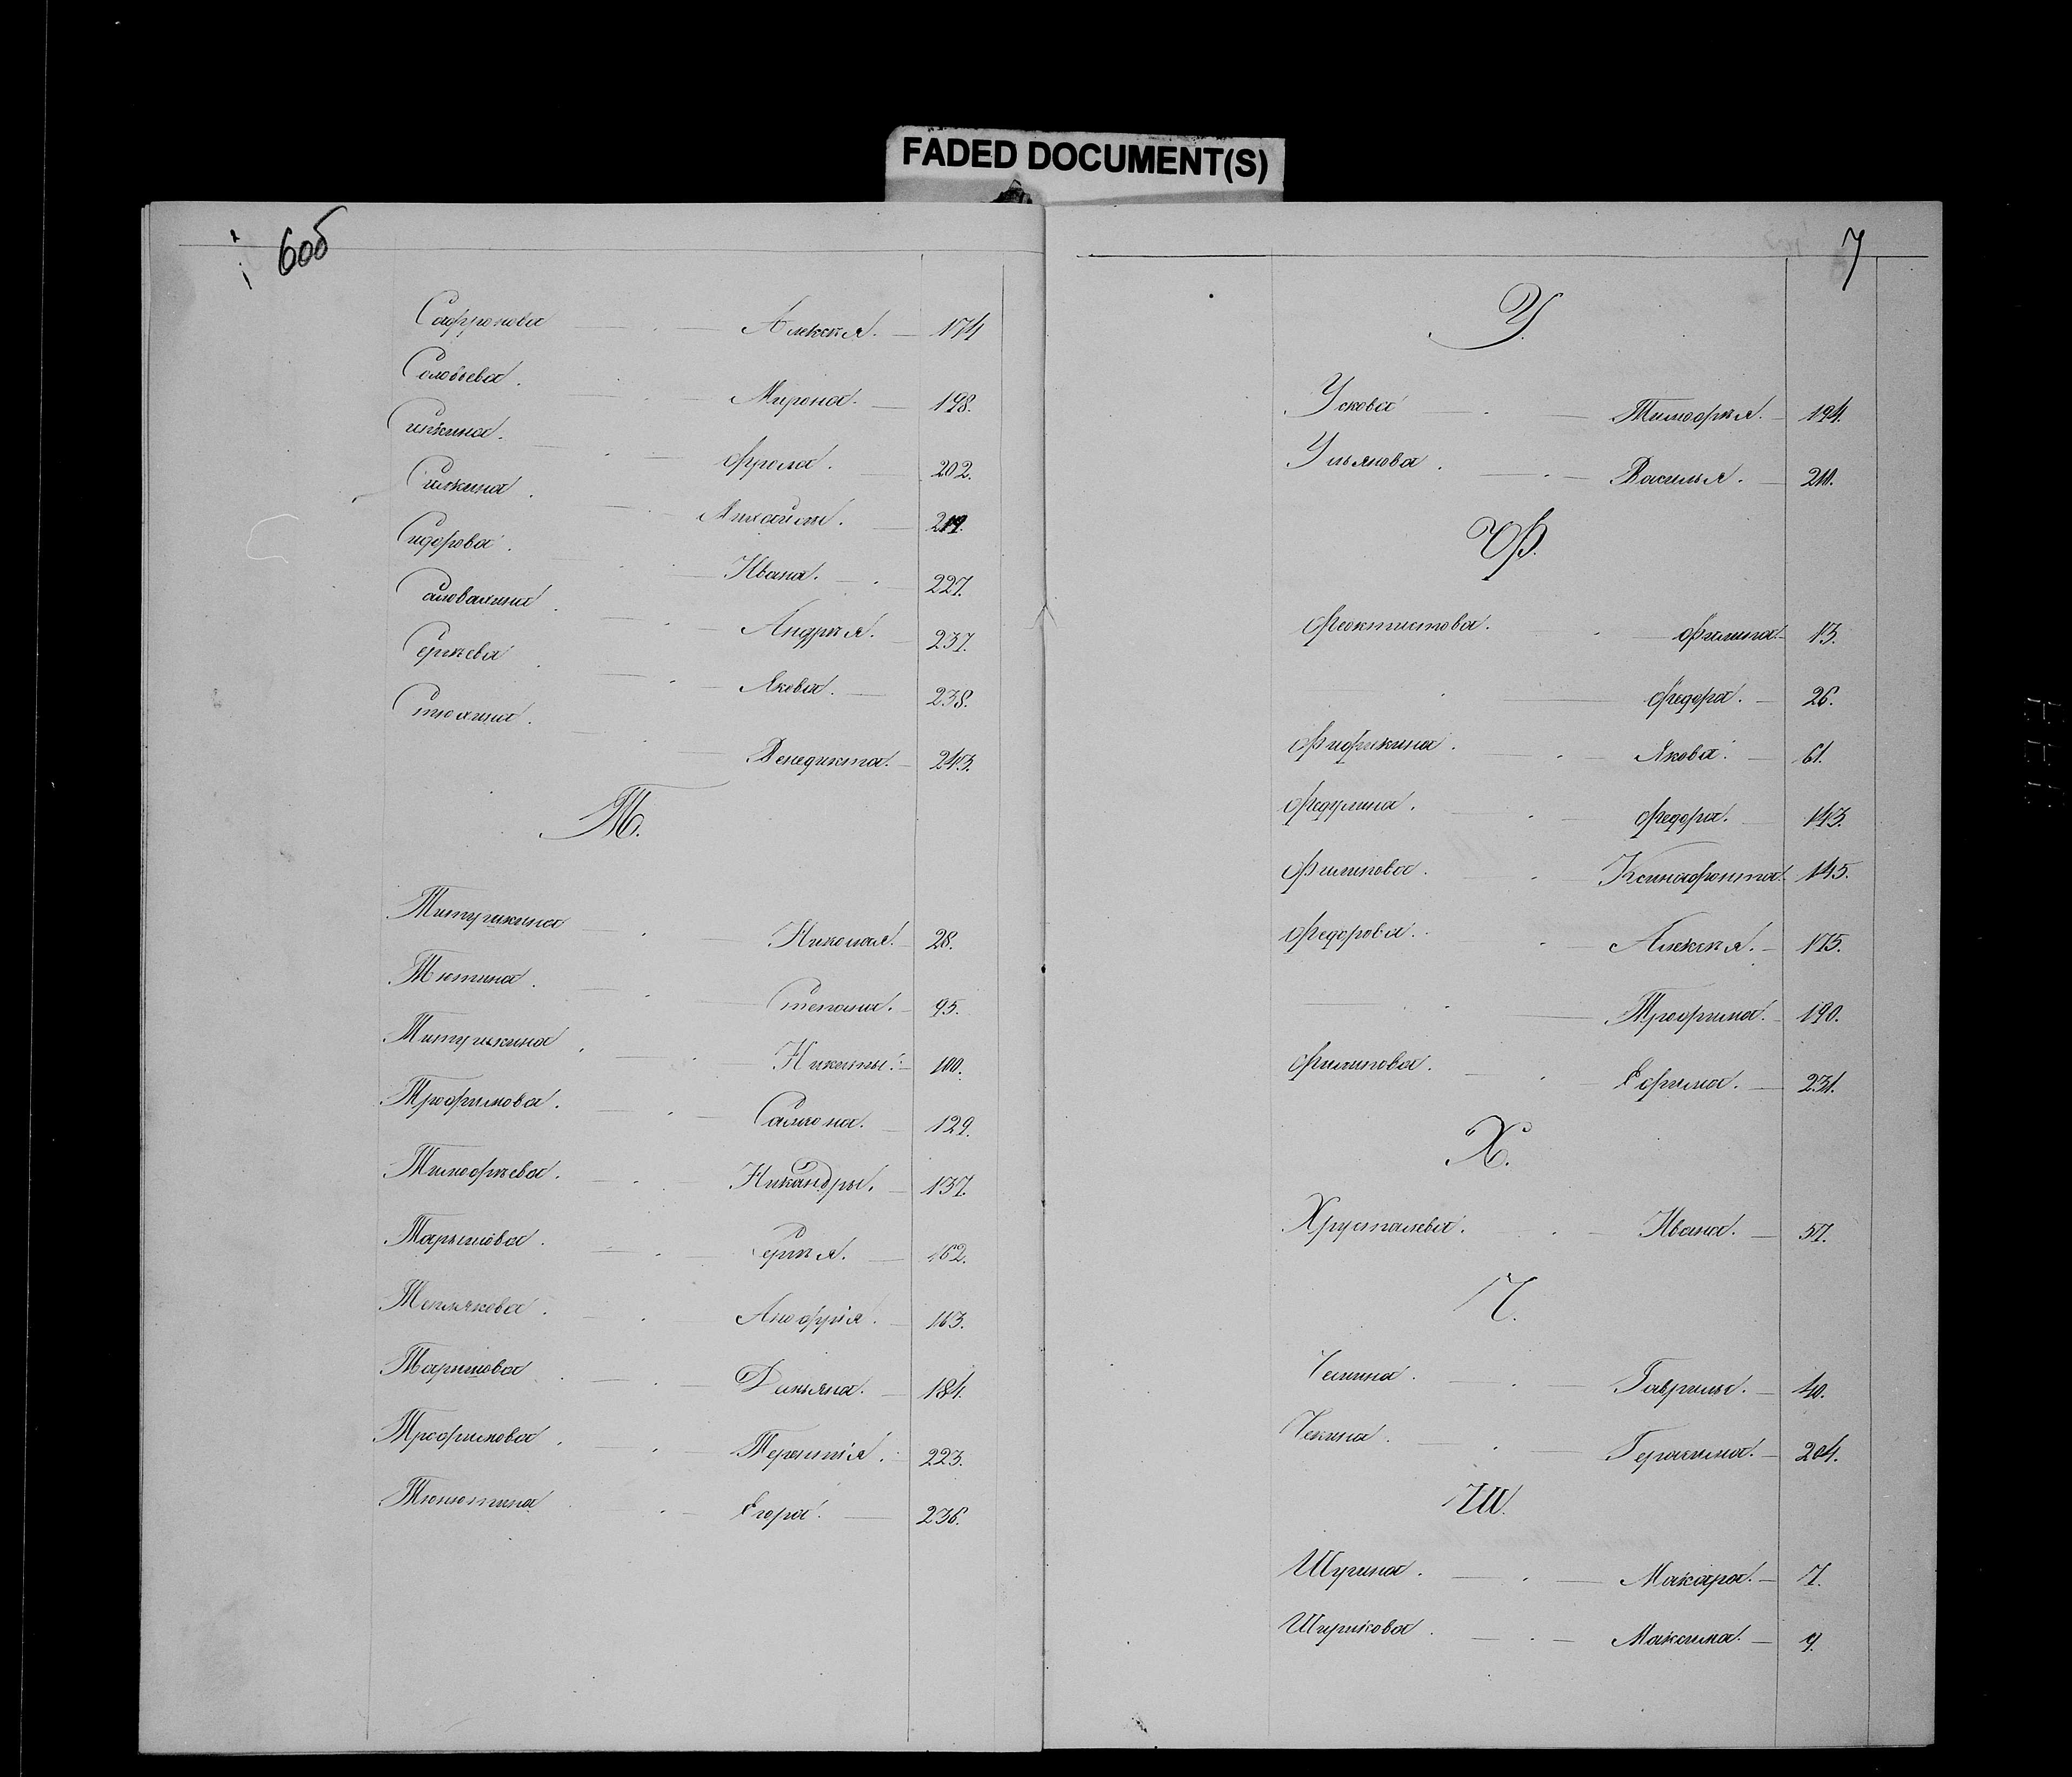 FADED DOCUMENT(S)
6об
Сафронова Алексѣя. 174
Соловьева. Мирона. 198.
Синѣкина. Фрола. 202.
Силкина. Михаила. 219.
Сидорова. Ивана. 227.
Андрѣя. 237.
Сергѣева. Якова. 238.
Стюхина. Венедикта. 243.
Т.
Титушкина Николая. 28.
Тютина. Степана. 95.
Титушкина. Никиты. 100.
Трофимова. Самсона. 129.
Тимофѣева. Никандры. 137.
Тарынова. Сергѣя. 162.
Теплякова. Анофрія. 163.
Тарынова. Дильяна. 184.
Трофимова. Терентія. 223.
Тюнютина Егора. 236.
7
У.
Ускова Тимофѣя. 194.
Ульянова. Василья. 210.
Ф.
Феоктистова. Филипа. 13.
Федора. 26.
Фификина. Якова. 61.
Федулина. Федора. 143.
Филипова. Ксинафонта. 145.
Федорова. Алексѣя. 175.
Трофима. 190.
Филипова. Ефима. 231.
Х.
Хрусталева. Ивана. 57.
Ч.
Гаврилы. 40.
Чекина. Герасима. 204.
Ш.
Шугина. Макара. 7.
Ширикова. Максима. 9.